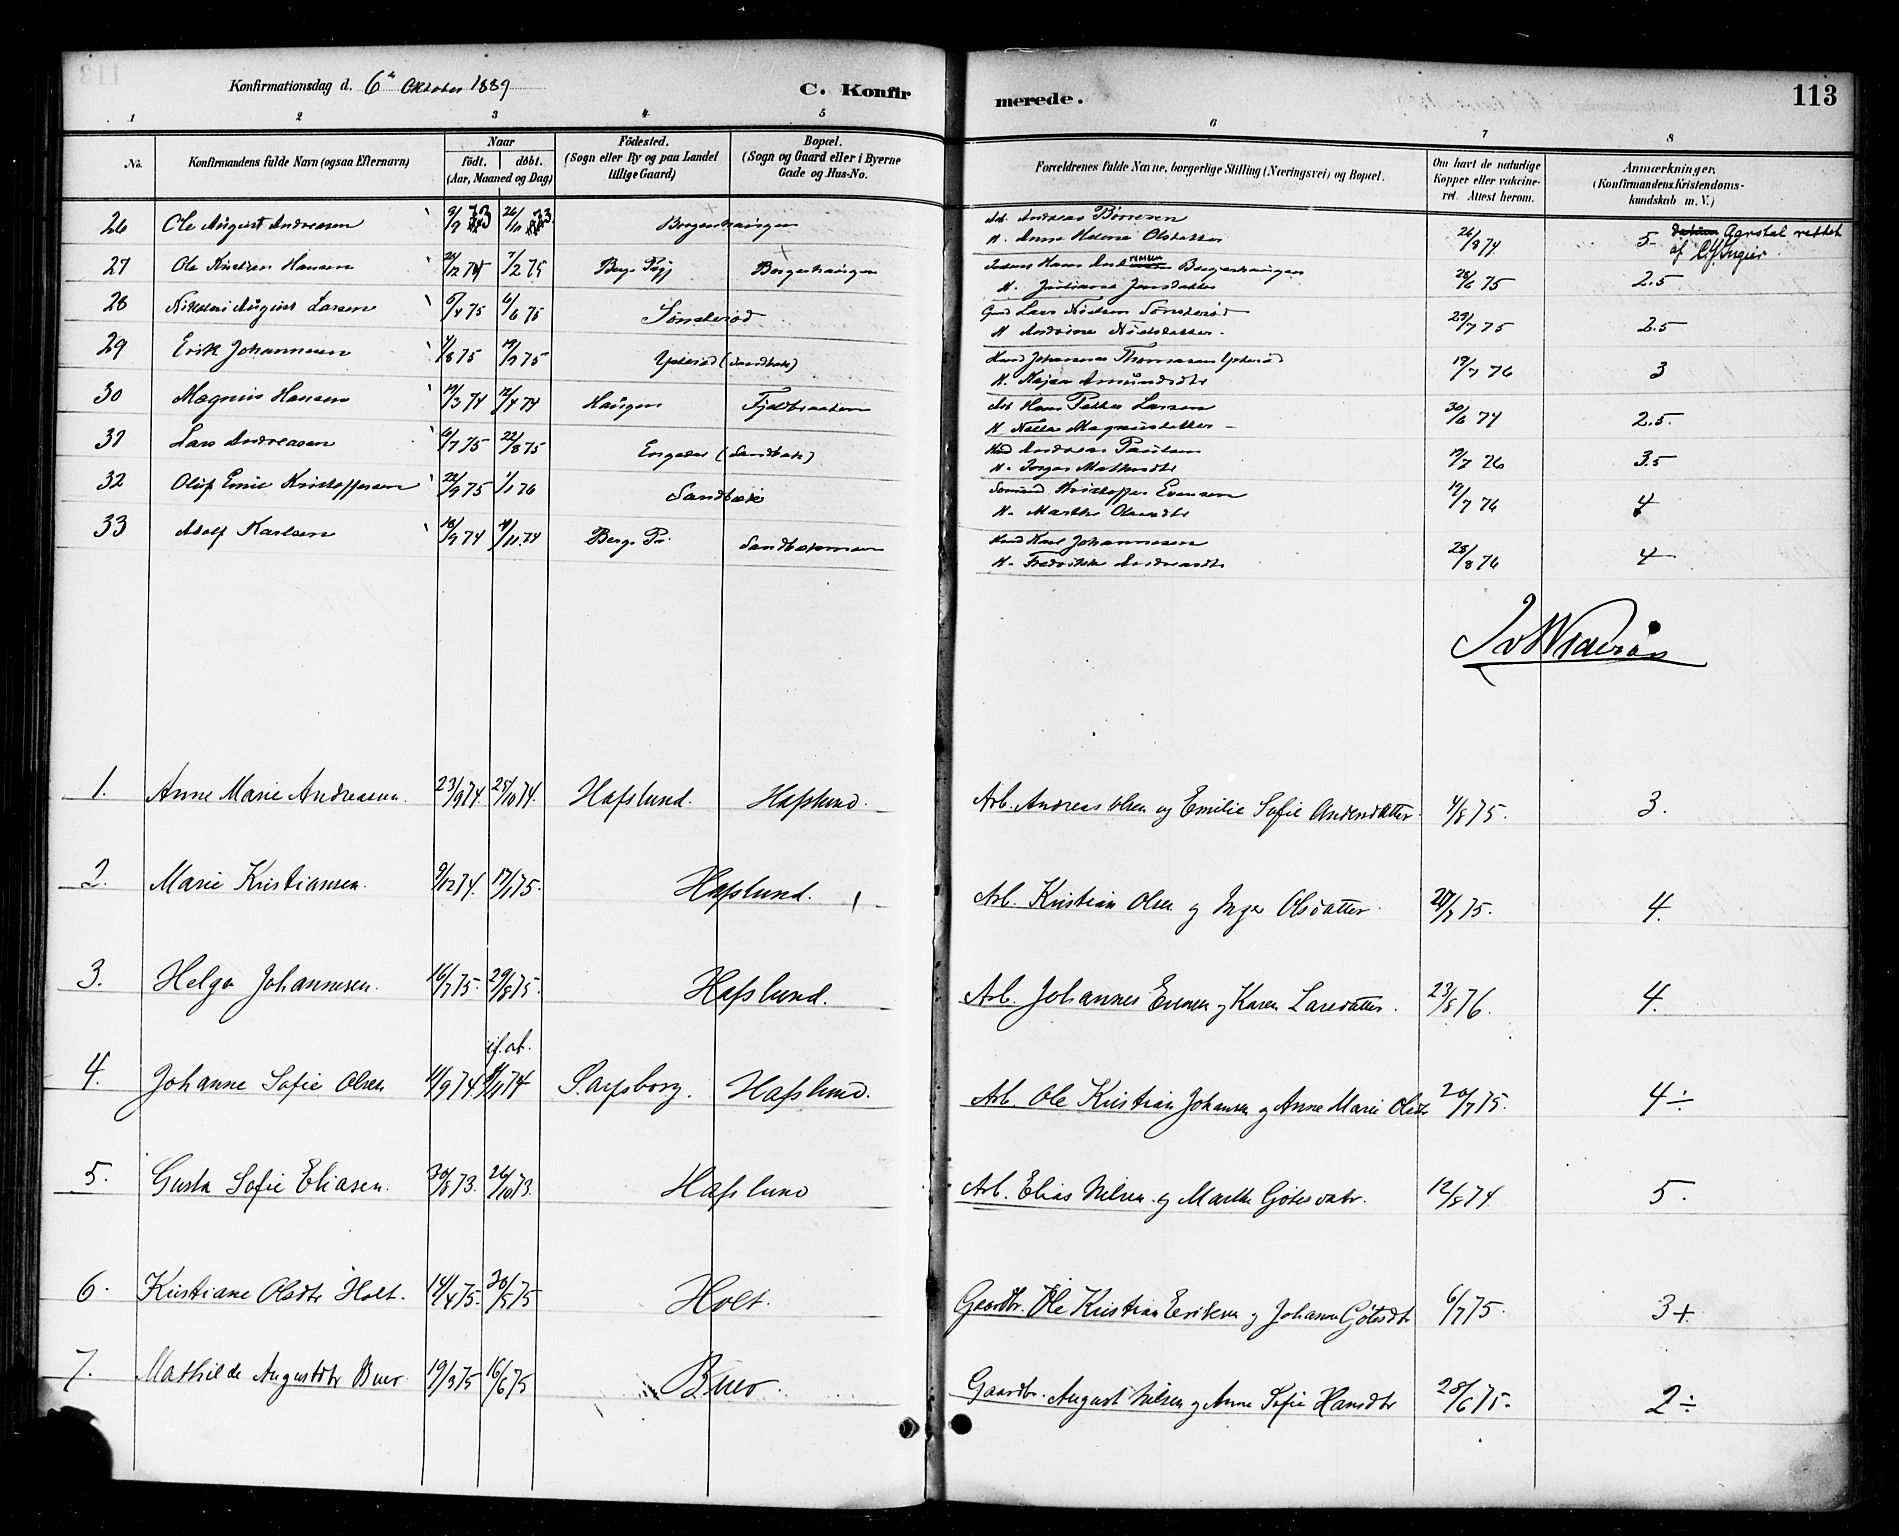 Konfirmationsdag d. 6te Oktober 1889
C. Konfirmerede.
113
1 2 3 4 5 6 7 8
No. Konfirmandens fulde Navn (ogsaa Efternavn) Naar født. døbt. (Aar, Maaned og Dag) Födested. (Sogn eller By og paa Landet tillige Gaard) Bopæl. (Sogn og Gaard eller i Byerne Gade og Hus-No. Forældrenes fulde Navne, borgerlige Stilling (Næringsvei) og Bopæl. Om havt de naturlige Kopper eller vakcineret. Attest herom. Anmærkninger. (Konfirmandens Kristendomskundskab m. V.)
26 Ole August Andreasen 9/9 73 26/10 73 Borgenhaugen Arb. Andreas Börresen 26/8 74 5 Aarstal rettet
H. Anne Helene Olsdatter af
27 Ole Kristian Hansen 24/12 74 7/2 75 Borgenhaugen Hans Borgenhaugen 28/6 75 2.5
H. Juliane Jensdatter
28 Nikolai August Larsen 5/4 75 6/6 75 Sönsteröd Gmd Lars Nielsen Sönsteröd 29/7 75 2.5
H. Andrine Nielsdatter
29 Erik Johannesen 7/8 75 19/9 75 Ysteröd (Sandbæk) Johannes Thomasen Ysteröd 19/7 76 3
H. Kajsa Amundsdtr
30 Magnus Hansen 19/3 74 12/4 74 Haugen Arb Hans Petter Larsen 30/6 74 2.5.
H. Magnusdatter
31 Lars Andreasen 6/7 75 22/8 75 Engeder (Sandbæk) Andreas Paulsen 19/7 76 3.5
H. Inger Mathisdtr
32 Oluf Emil Kristoffersen 22/9 75 1/1 76 Sandbæk Kristoffer Evensen 19/7 76 4
H. Marthe Olsendtr
33 Adolf Karlsen 18/9 74 11/10 74 Berg Pr. Sandbakmoen Karl Johannesen 28/8 76 4
H. Fredrikke Andreasdtr
1. Anne Marie Andreasen. 23/9 74 25/10 74. Hafslund. Hafslund. Arb. Andreas Olsen og Emilie Sofie Andersdatter 4/8 75. 3.
2. Marie Kristiansen. 9/12 74. 17/1 75. Hafslund. Arb. Kristian Olsen og Inger Olsdatter. 27/7 75. 4.
3. Helga Johannesen. 16/7 75. 29/8 75. Hafslund. Arb. Johannes Evensen og Karen Larsdatter. 23/8 76. 4.
if. at.
4. Johanne Sofie Olsen 11/9 74. 8/11 74 Sarpsborg. Hafslund. Arb. Ole Kristian Johansen og Anne Marie Olsd. 20/7 75. 4÷
5. Gusta Sofie Eliasen. 30/8 73. 26/10 73. Hafslund Arb. Elias Nilsen og Marthe Götesdatr. 12/8 74 5.
6. Kristiane Olsdtr Holt. 14/4 75. 30/5 75 Holt. Gaardbr. Ole Kristian Eriksen og Johanne Götesdtr 6/7 75. 3+
7. Mathilde Augustdtr Buer 19/3 75 16/6 75 Buer. Gaardbr. August Nilsen og Anne Sofie Hansdtr 28/6 75. 2÷